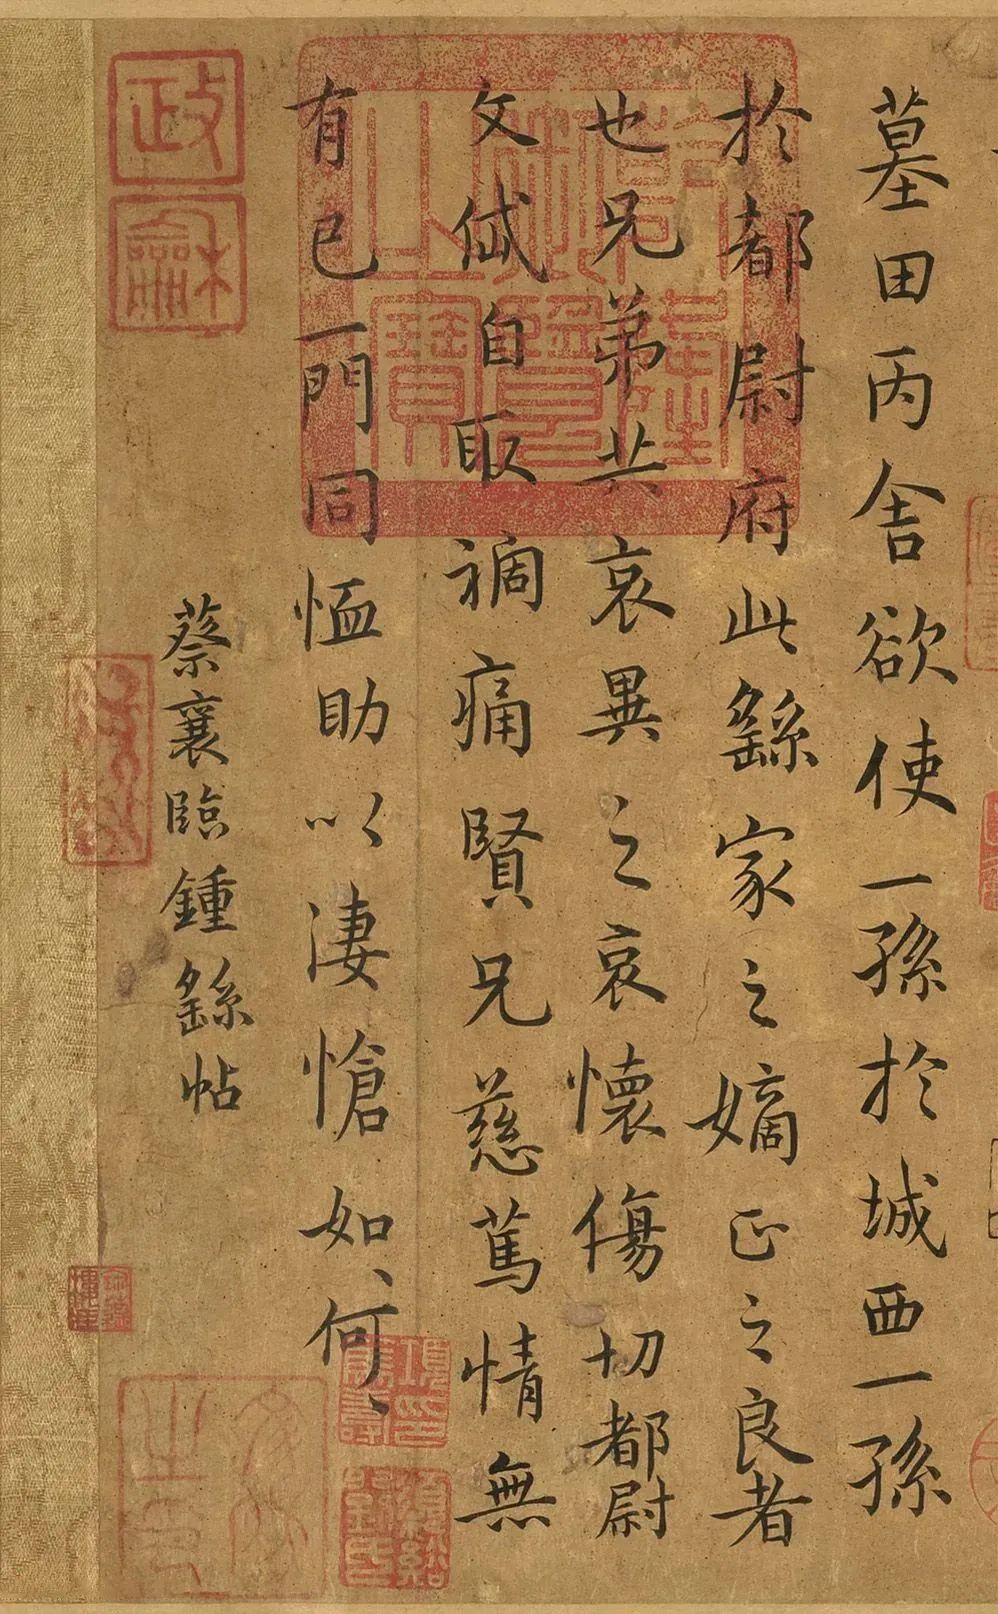 墓田丙舍欲使一孫於城西一孫
於都尉府此繇家之嫡正之良者
也兄弟共哀異之哀懷傷切都尉
文岱自取禍痛賢兄慈篤情無
有已一門同恤助以淒愴如、何、
蔡襄臨鍾繇帖
政
龢